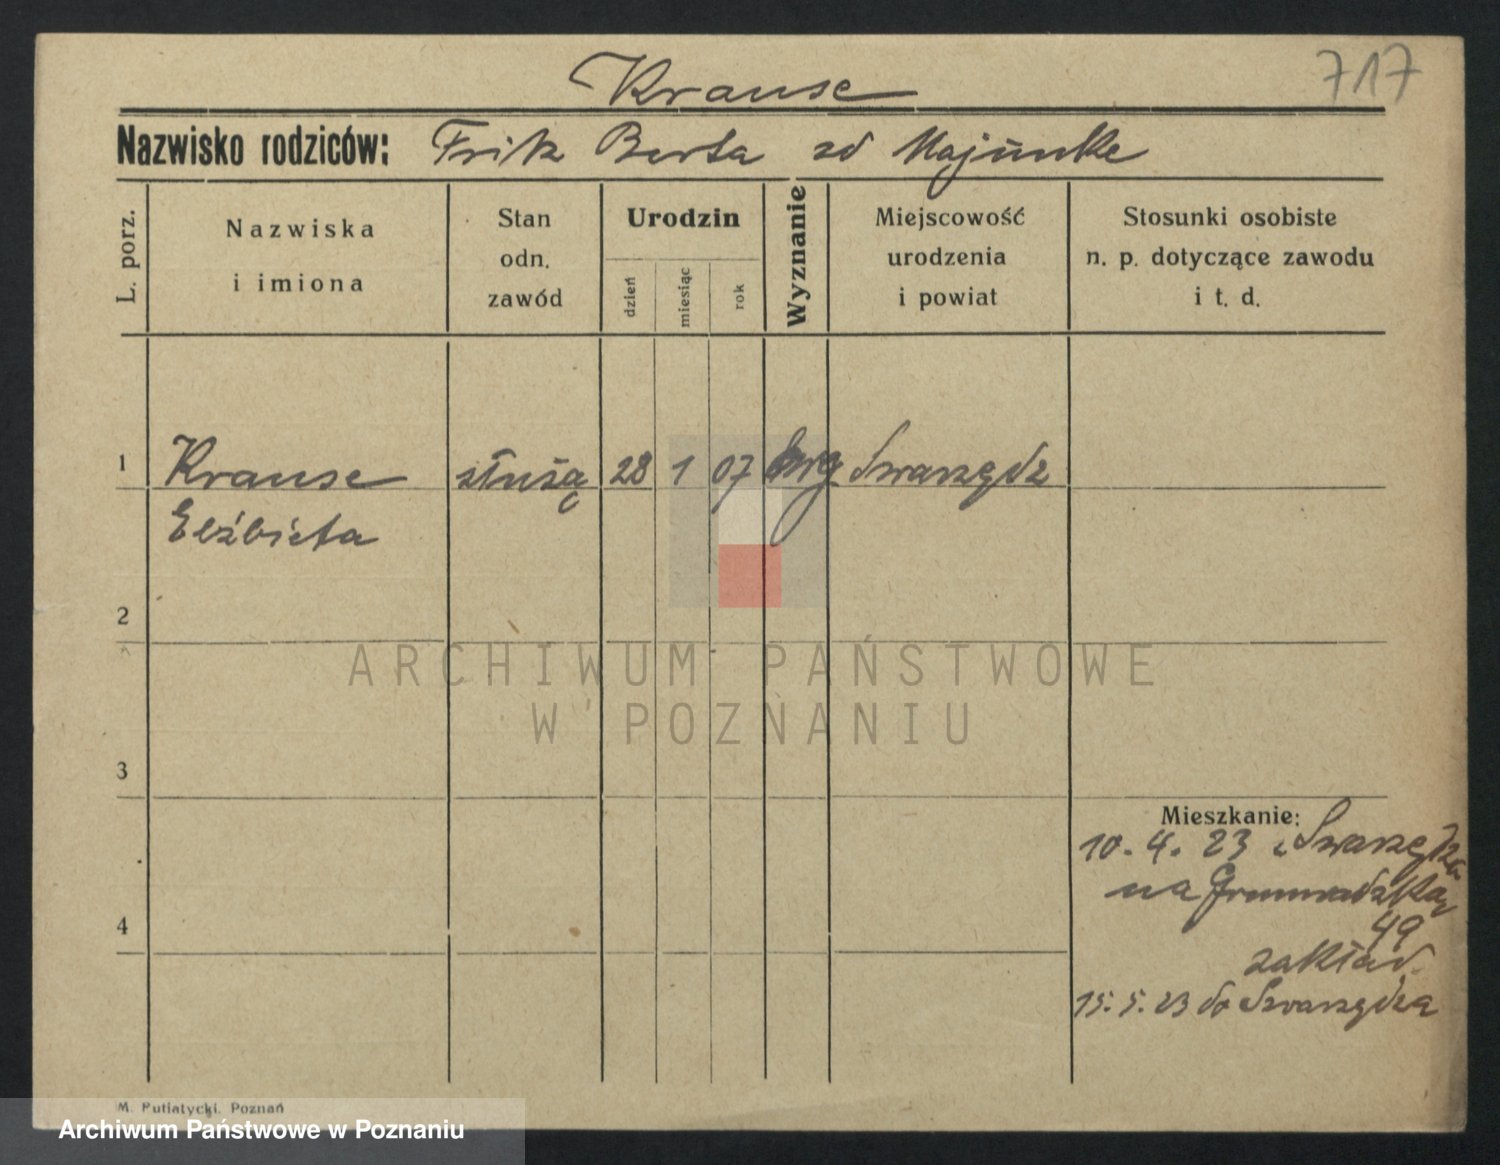 Krause
717
Nazwisko rodziców: Frik Berta zd Majunke
L. porz.
Nazwiska
i imiona
Stan
odn.
zawód
Urodzin
dzień
miesiąc
rok
Wyznanie
Miejscowość
urodzenia
i powiat
Stosunki osobiste
n. p. dotyczące zawodu
i t. d.
1 Krause służą 28 1 07 Swarzędz
Elżbieta
2
ARCHIWUM PAŃSTWOWE
W POZNANIU
3
Mieszkanie:
10. 4. 23 z Swarzędza
na Gromadzką
49
zakład
15. 5. 23 do Swarzędza
4
M. Putiatycki, Poznań
Archiwum Państwowe w Poznaniu